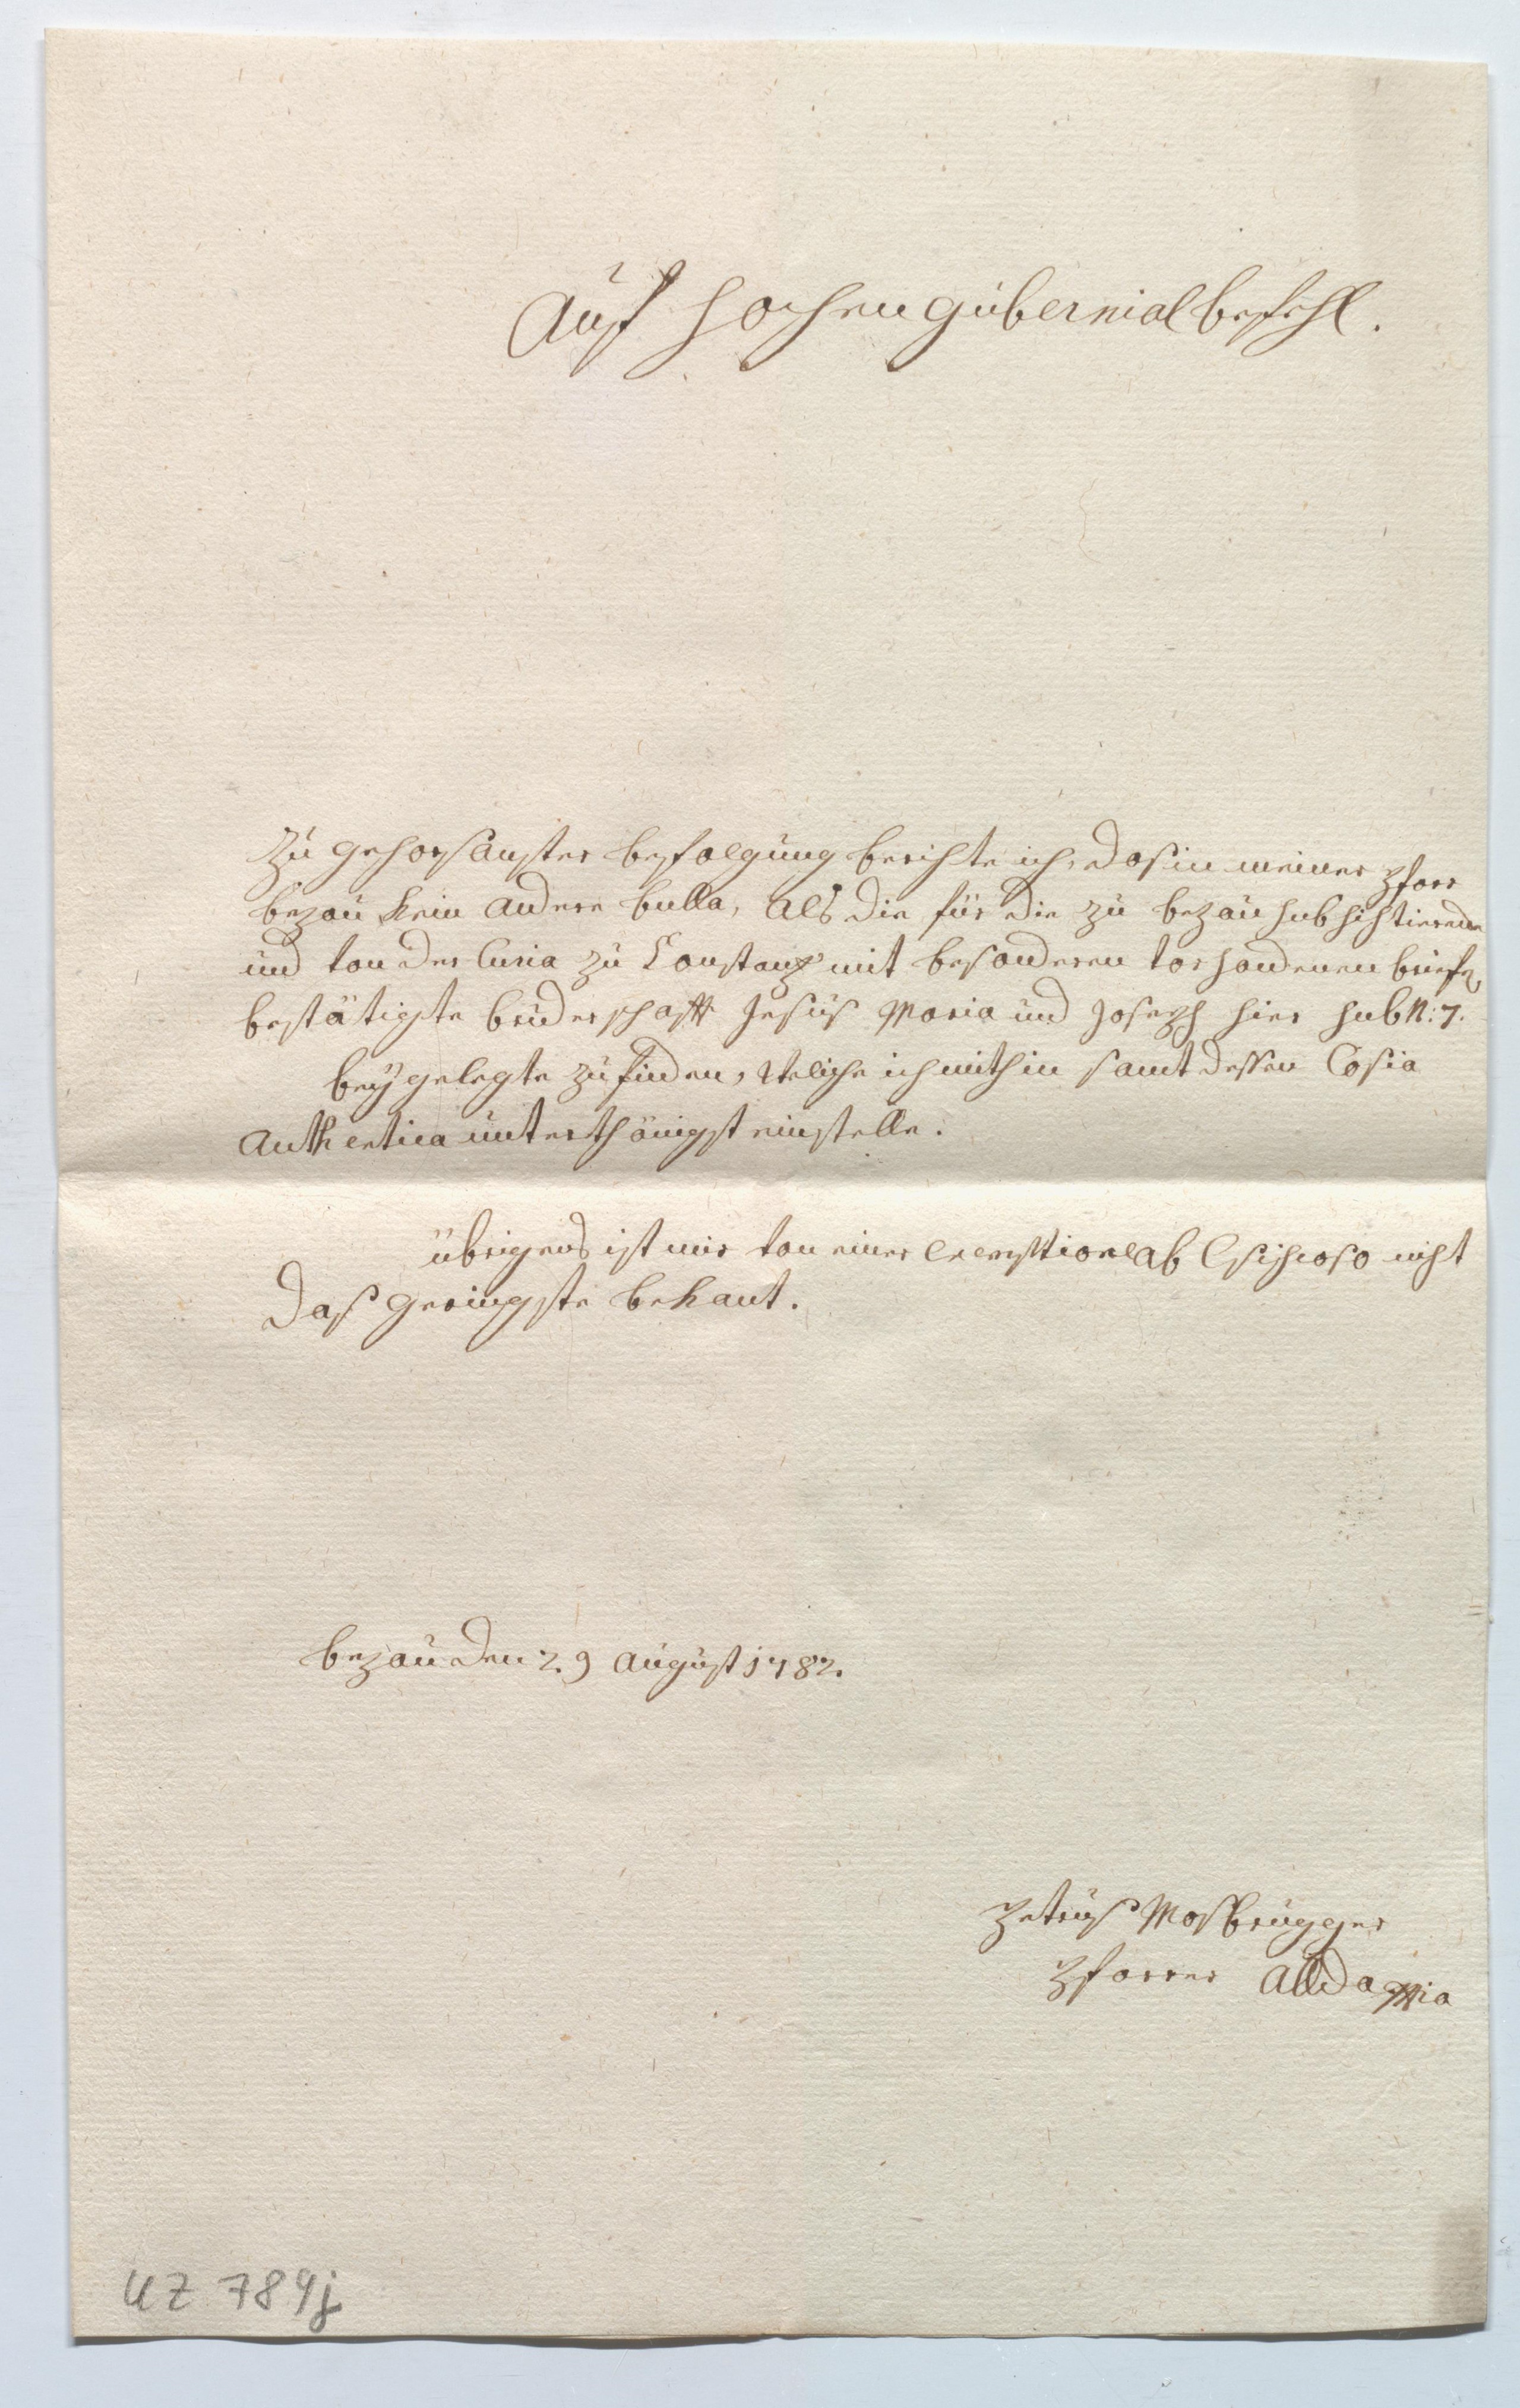 Auf hochen gübernial befehl.
Zü gehorsamster befolgüng berichte ich, das in meiner Pfarr
bezaü kein andere bulla, als die für die zü bezaü subsistierende
und von der Curia zü Constanz mit besonderen vorhandenen briefe
bestätigte brüderschafft Jesüs Maria und Joseph hier sub N: 7.
beÿ gelegte zü finden, weliche ich mithin samt dessen Copia
Authentica ünterthänigst einstelle.
übrigens ist mir von einer exemptione ab Episcopo nicht
das geringste bekant.
bezaü den 29 Augüst 1782.
Petrüs Mosbrügger
Pfarrer Allda
UZ 789j